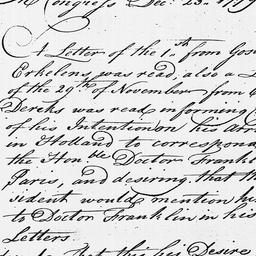 Congress Dec: 23.
A Letter of the 1.st from Gosu
Erkelens, was read, also a L
of the 29th of November from
Dercks was read informing
of his Intention on his Arri
in Holland to correspond
the Honble Doctor Frankl
Paris, and desiring that th
sident would mention hi
to Doctor Franklin in his
Letters.
that this his Desire